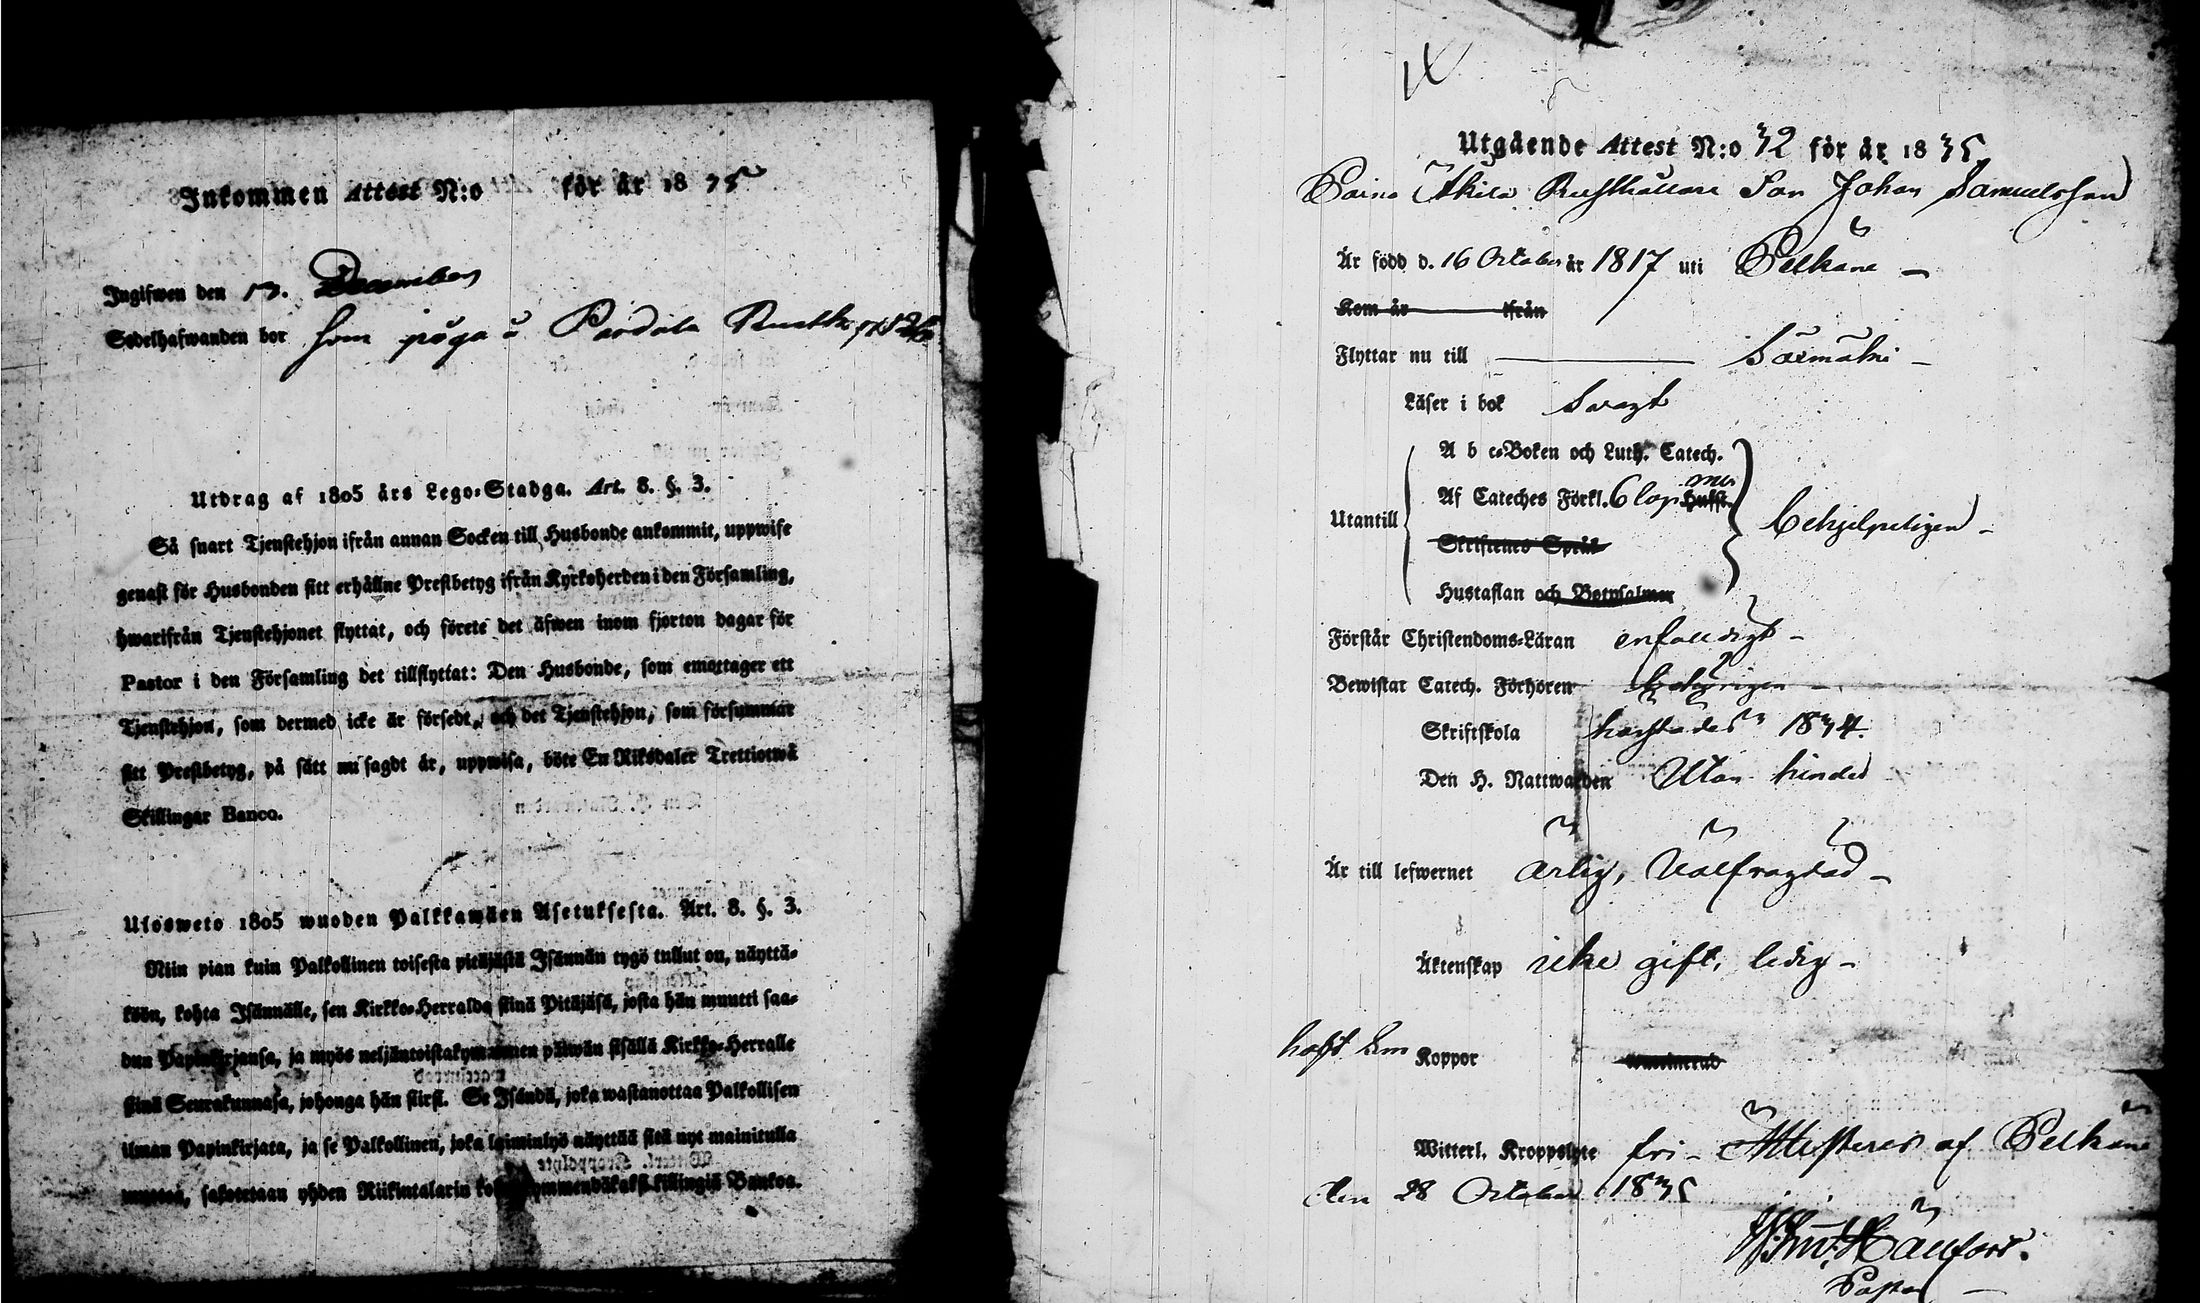 Inkommen Attest N:o för år 1835
Ingifwen den 13. December
Sedelhafwanden bor som piga i Pardala
Utdrag af 1805 års Lego-Stadga. Art. 8. §. 3.
Så snart Tjenstehjon ifrån annan Socken till Husbonde ankommit, uppwise
genast för Husbonden sitt erhållne Prestbetyg ifrån Kyrkoherden i den Församling,
hwarifrån Tjenstehjonet flyttat, och förete det äfwen inom fjorton dagar för
Pastor i den Församling det tillflyttat: Den Husbonde, som emottager ett
Tjenstehjon, som dermed icke är försedt, och det Tjenstehjon, som försummar
sitt Prestbetyg, på sätt nu sagdt är, uppwisa, böte En Riksdaler Trettiotwå
Skillingar Banco.
Ulosweto 1805 wuoden Palkkawäen Asetuksesta. Art. 8. §. 3.
Niin pian kuin Palkollinen toisesta pitäjästä Isännän tygö tullut on, näyttä-
köön, kohta Isännälle, sen Kirkko-Herralda siinä Pitäjäsä, josta hän muutti saa-
dun Papinkirjansa, ja myös neljäntoistakymmenen päiwän sisällä Kirkko-Herralle
siinä Seurakunnasa, johonga hän siirsi. Se Isändä, joka wastanottaa Palkollisen
ilman Papinkirjata, ja se Palkollinen, joka laiminlyö näyttää sitä nyt mainitulla
sakotetaan yhden Riikintalarin Bankoa.
Utgående Attest N:o 32 för år 1835
Rusthållare Son Johan Samuelsson
Är född d. 16 October år 1817 uti Pelkäne –
Kom år ifrån
Flyttar nu till Särmäki –
Läser i bok Svagt
A b c-Boken och Luth. Catech.
Af Cateches Förkl. 6 Hufst.
Utantill
Skriftenes Språk
Hustaflan och Botpsalmer
Förstår Christendoms-Läran enfaldigt –
Bewistat Catech. Förhören
Skriftskola 1834.
Den H. Nattwarden Utan hinder
Är till lefwernet ärlig, välfrägdad –
Äktenskap icke gift, ledig –
haft Em Koppor
Witterl. Kroppslyte fri – Attesteras af Pelkäne
den 28 October 1835
Pastor